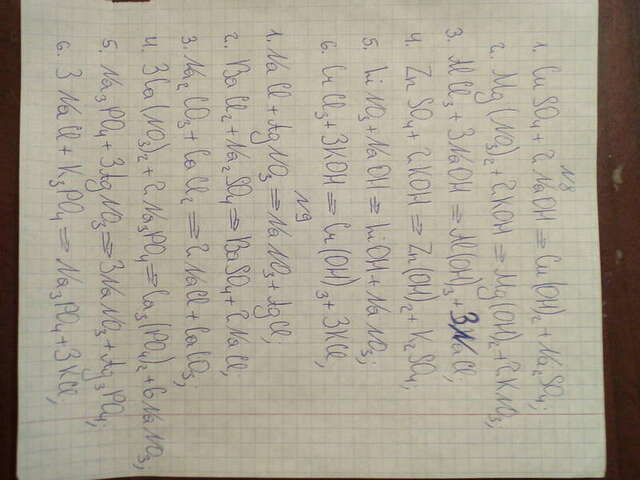 N8
1. CuSO₄ + 2NaOH ⇒ Cu(OH)₂ + Na₂SO₄;
2. Mg(NO₃)₂ + 2KOH ⇒ Mg(OH)₂ + 2KNO₃;
3. AlCl₃ + 3NaOH ⇒ Al(OH)₃ + 3NaCl;
4. ZnSO₄ + 2KOH ⇒ Zn(OH)₂ + K₂SO₄;
5. LiNO₃ + NaOH ⇒ LiOH + NaNO₃;
6. CrCl₃ + 3KOH ⇒ Cr(OH)₃ + 3KCl;
N9
1. NaCl + AgNO₃ ⇒ NaNO₃ + AgCl;
2. BaCl₂ + Na₂SO₄ ⇒ BaSO₄ + 2NaCl;
3. Na₂CO₃ + CaCl₂ ⇒ 2NaCl + CaCO₃;
4. 3Ca(NO₃)₂ + 2Na₃PO₄ ⇒ Ca₃(PO₄)₂ + 6NaNO₃;
5. Na₃PO₄ + 3AgNO₃ ⇒ 3NaNO₃ + Ag₃PO₄;
6. 3NaCl + K₃PO₄ ⇒ Na₃PO₄ + 3KCl;